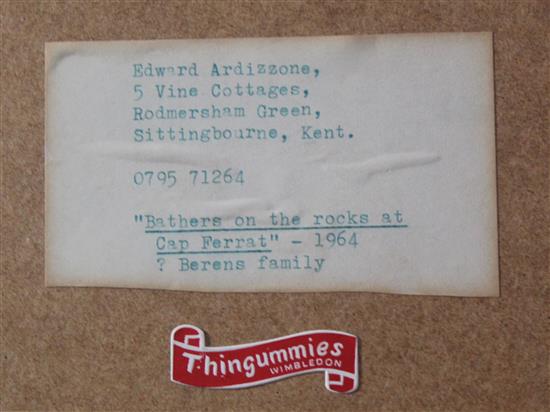 Edward Ardizzone,
5 Vine Cottages,
Rodmersham Green,
Sittingbourne, Kent.
0795 71264
"Bathers on the rocks at
Cap Ferrat" - 1964
? Berens family
Thingummies
WIMBLEDON